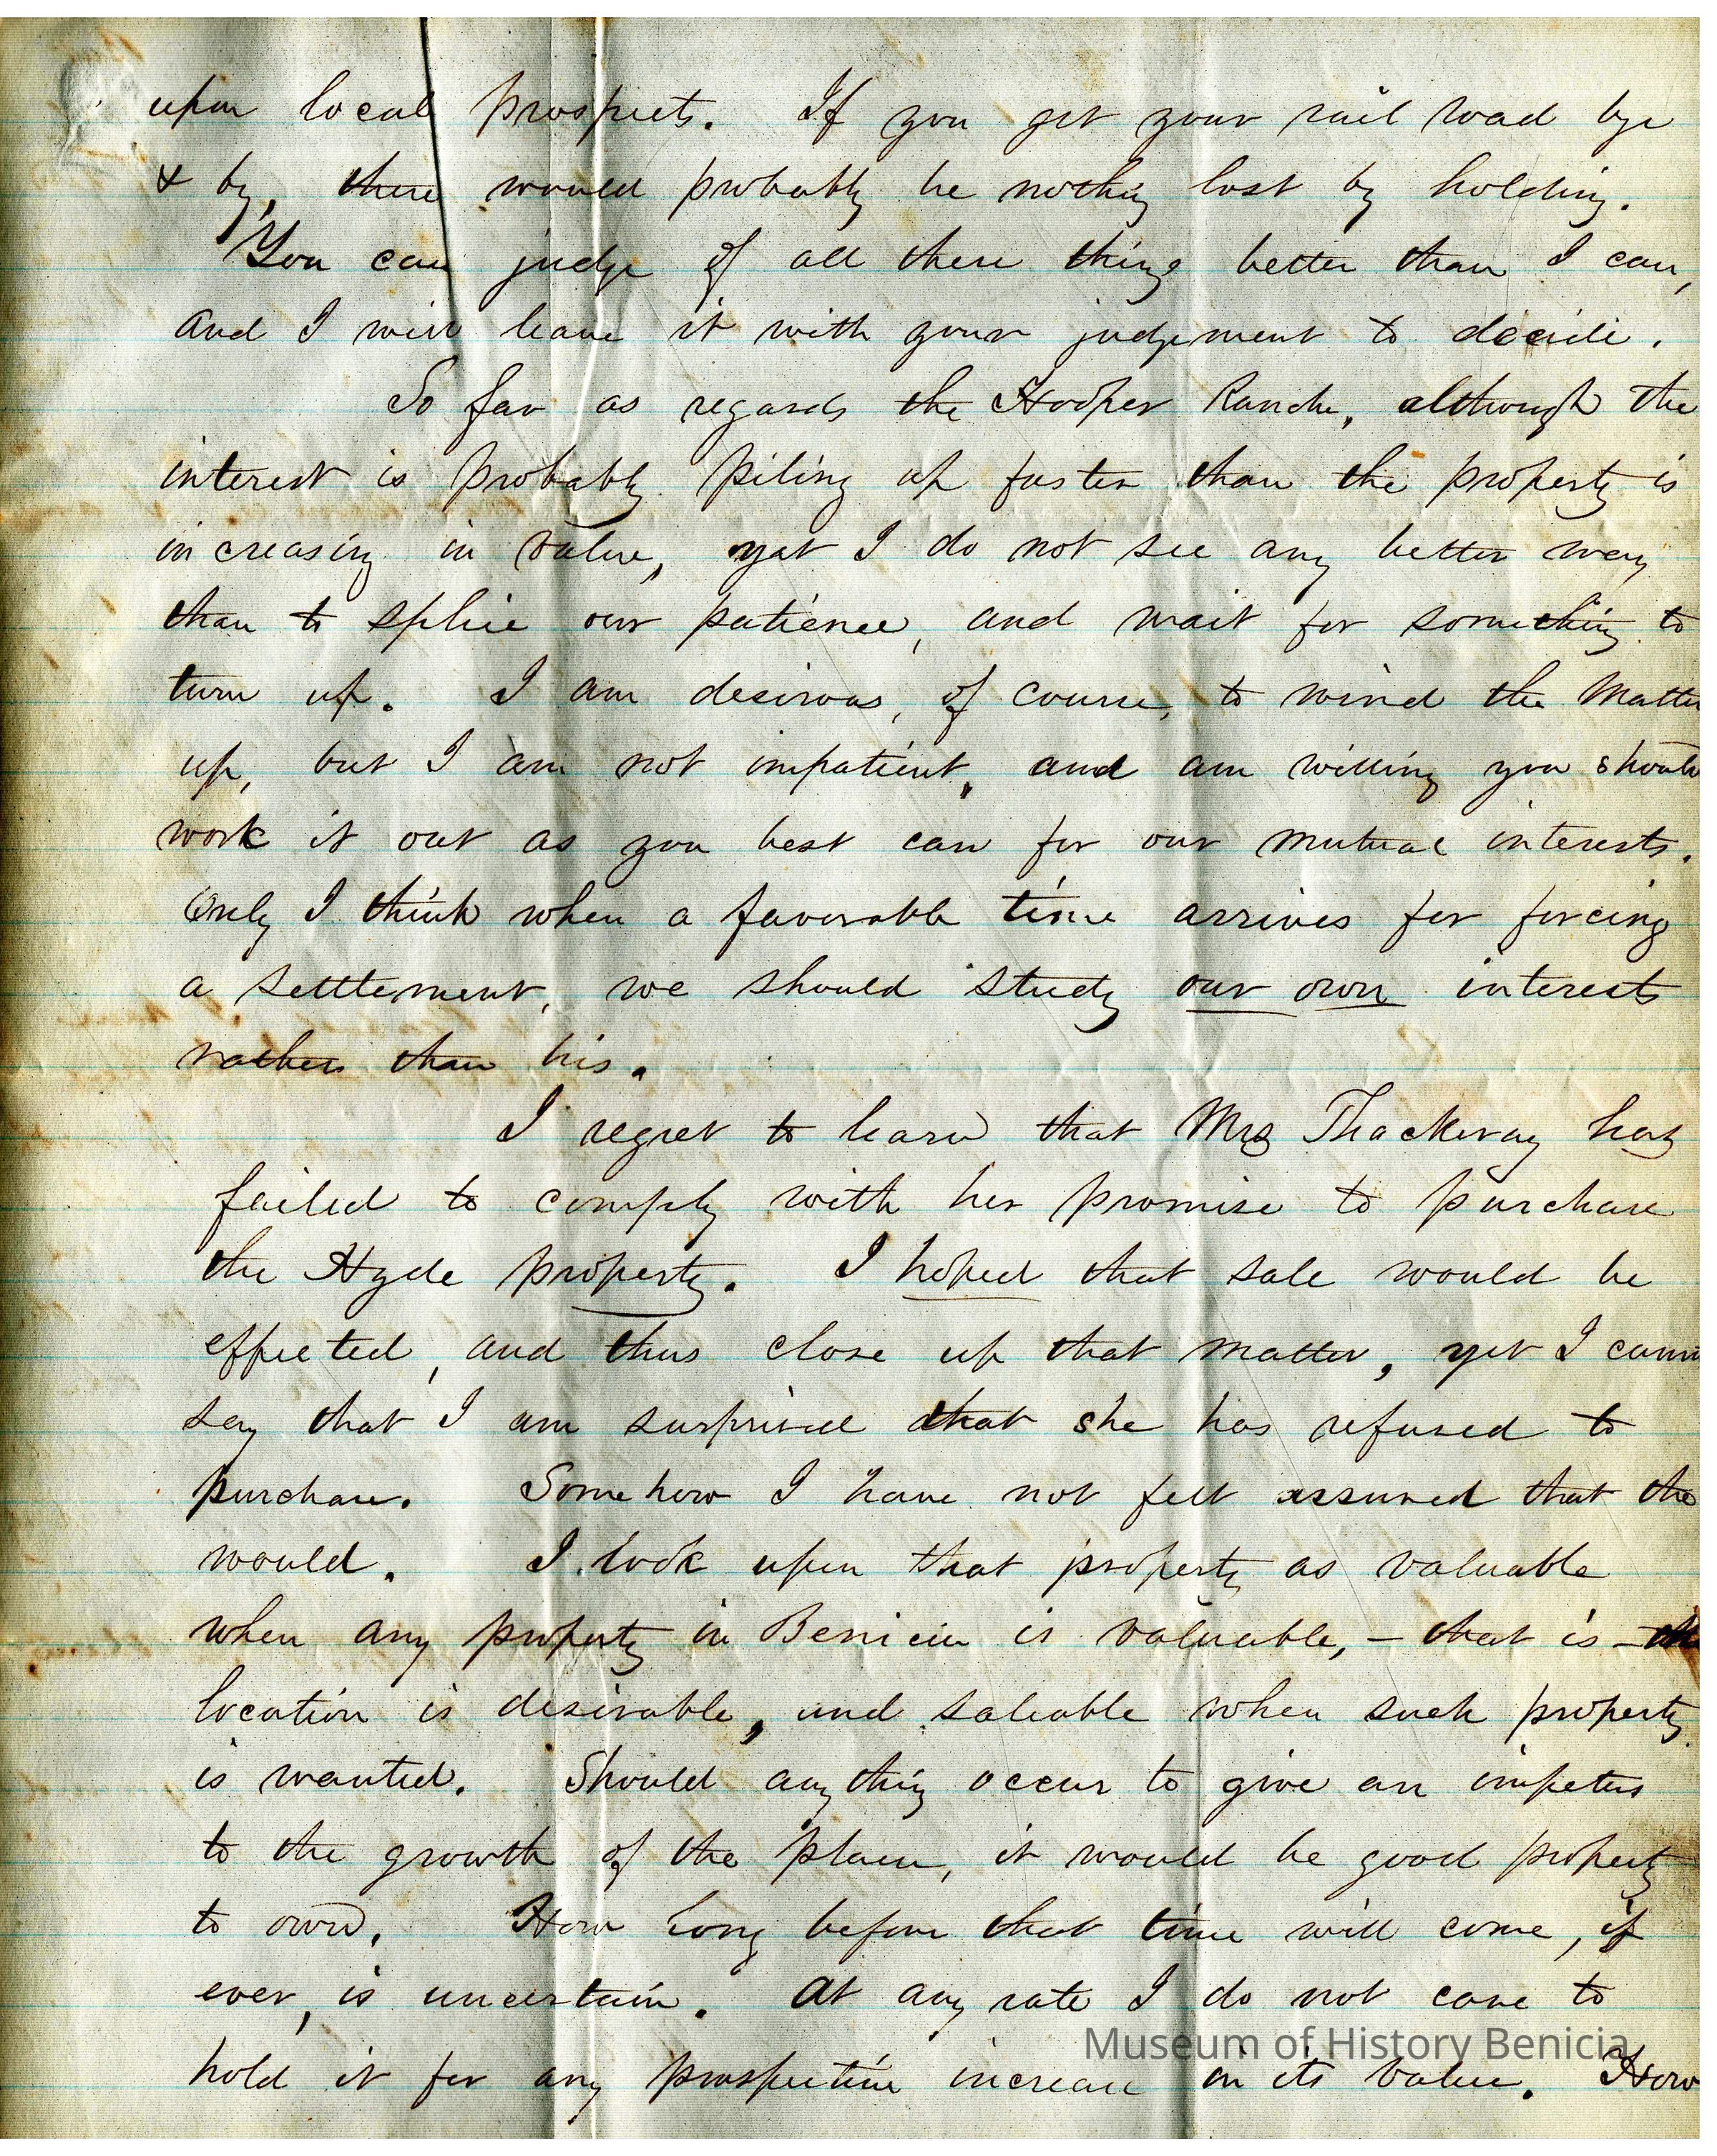 upon local prospects. If you get your rail road bye
& by, there would probably be nothing lost by holding.
You can judge of all these things better than I can,
and I will leave it with your judgement to decide.
So far as regards the Hooper Ranche, although the
interest is probably piling up faster than the property is
increasing in value, yet I do not see any better way
than to splice our patience, and wait for something to
turn up. I am desirous, of course, to wind the Matter
up, but I am not impatient, and am willing you should
work it out as you best can for our mutual interests.
Only I think when a favorable time arrives for forcing
a settlement, we should study our own interests
rather than his.
I regret to learn that Mrs Thackeray has
failed to comply with her promise to purchase
the Hyde property. I hoped that sale would be
effected, and thus close up that matter, yet I cann
say that I am surprised that she has refused to
purchase. Somehow I have not felt assured that she
would. I look upon that property as valuable
when any property in Benicia is valuable, – that is – the
location is desirable, and saleable when such property
is wanted. Should any thing occur to give an impetus
to the growth of the place, it would be good property
to own. How long before that time will come, if
ever, is uncertain. At any rate I do not care to
hold it for any prospective increase in its value. How
Museum of History Benicia